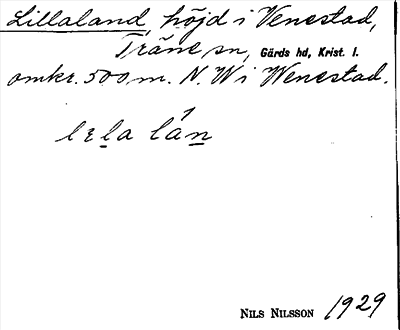 Lillaland, höjd i Venestad,
Träne sn, Gärds hd, Krist. l.
omkr. 500 m. N. W i Wenestad.
lɛl̲a lán̲
NILS NILSSON 1929